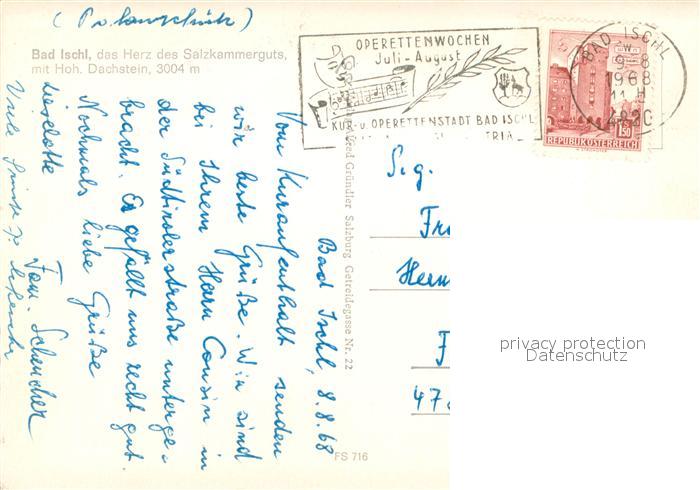 Bad Ischl, das Herz des Salzkammerguts,
mit Hoh. Dachstein, 3004 m
OPERETTENWOCHEN
Juli - August
KUR- u. OPERETTENSTADT BAD ISCHL
BAD ISCHL
9.-8
1968
11 H
4820
1.50
REPUBLIK ÖSTERREICH
Bad Ischl, 8.8.68
Vom Kuraufenthalt senden
wir beste Grüße. Wir sind
bei Ihrem Herrn Cousin in
der Südtirolerstraße unterge-
bracht. Es gefällt uns recht gut.
Nochmals liebe Grüße
Fam. Schencher
Lieselotte
Viele
Gründler Salzburg Getreidegasse Nr. 22
Sig.
Fr
Herm
F
47
privacy protection
Datenschutz
FS 716